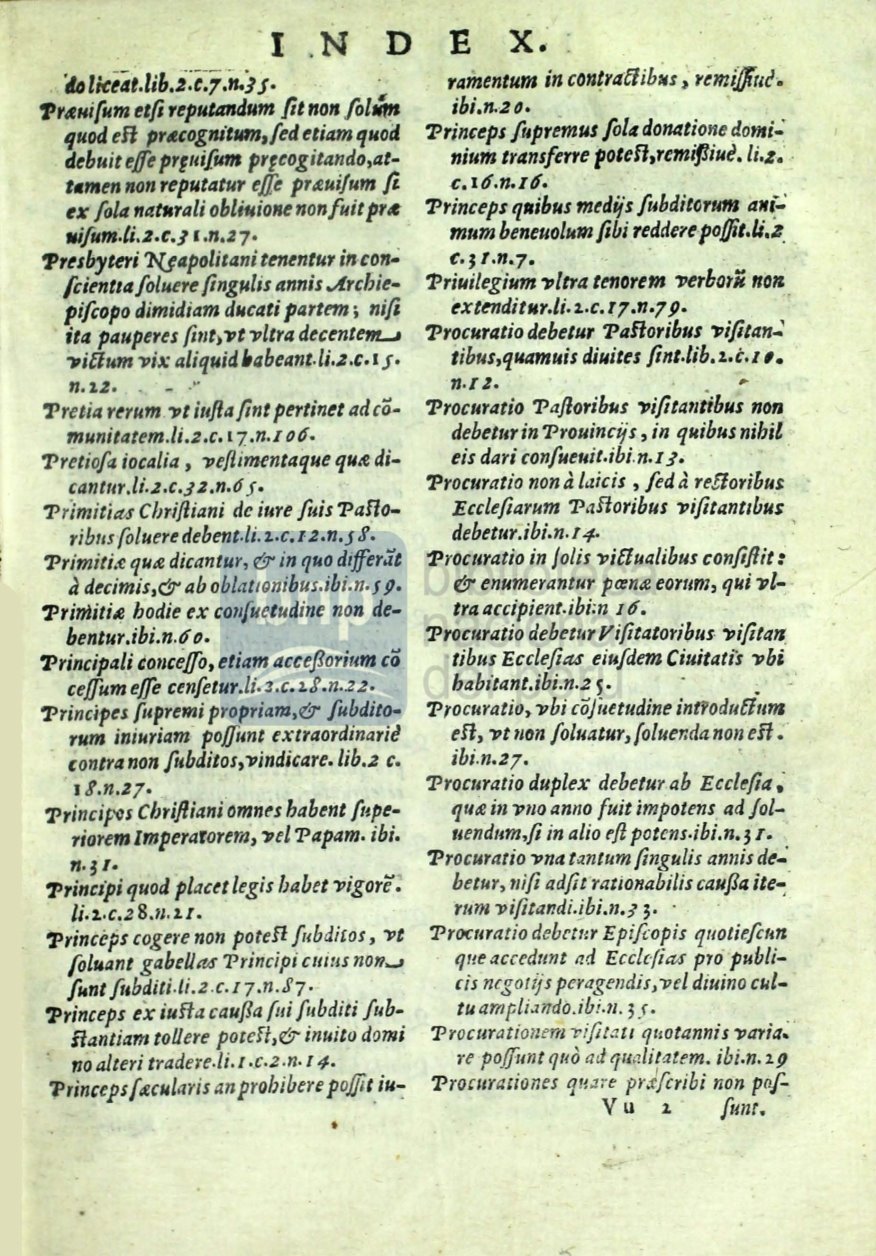 INDEX.
do liceat.lib.2.c.7.n.35.
Præuiſum etſi reputandum ſit non ſolùm
quod eſt præcognitum, ſed etiam quod
debuit eſſe pręuiſum pręcogitando, at-
tamen non reputatur eſſe præuiſum ſi
ex ſola naturali obliuione non fuit præ
uiſum.li.2.c.31.n.27.
Presbyteri Neapolitani tenentur in con-
ſcientia ſoluere ſingulis annis Archie-
piſcopo dimidiam ducati partem; niſi
ita pauperes ſint, vt vltra decentem
victum vix aliquid habeant.li.2.c.15.
n.22.
Pretia rerum vt iuſta ſint pertinet ad cō-
munitatem.li.2.c.17.n.106.
Pretioſa iocalia, veſtimentaque quæ di-
cantur.li.2.c.32.n.65.
Primitias Chriſtiani de iure ſuis Paſto-
ribus ſoluere debent.li.2.c.12.n.58.
Primitiæ quæ dicantur, & in quo differāt
à decimis, & ab oblationibus.ibi.n.59.
Primitiæ hodie ex conſuetudine non de-
bentur.ibi.n.60.
Principali conceſſo, etiam acceßorium cō
ceſſum eſſe cenſetur.li.2.c.28.n.22.
Principes ſupremi propriam, & ſubdito-
rum iniuriam poſſunt extraordinariè
contra non ſubditos, vindicare. lib.2 c.
18.n.27.
Principes Chriſtiani omnes habent ſupe-
riorem Imperatorem, vel Papam. ibi.
n.31.
Principi quod placet legis habet vigorē.
li.2.c.28.n.21.
Princeps cogere non poteſt ſubditos, vt
ſoluant gabellas Principi cuius non
ſunt ſubditi.li.2.c.17.n.87.
Princeps ex iuſta cauſſa ſui ſubditi ſub-
ſtantiam tollere poteſt, & inuito domi
no alteri tradere.li.1.c.2.n.14.
Princeps ſæcularis an prohibere poſſit iu-
ramentum in contractibus, remiſſiuè.
ibi.n.20.
Princeps ſupremus ſola donatione domi-
nium transferre poteſt, remißiuè. li.2.
c.16.n.16.
Princeps quibus medijs ſubditorum ani-
mum beneuolum ſibi reddere poſſit.li.2
c.31.n.7.
Priuilegium vltra tenorem verborū non
extenditur.li.2.c.17.n.79.
Procuratio debetur Paſtoribus viſitan-
tibus, quamuis diuites ſint.lib.2.c.10.
n.12.
Procuratio Paſtoribus viſitantibus non
debetur in Prouincijs, in quibus nihil
eis dari conſueuit.ibi.n.13.
Procuratio non à laicis, ſed à rectoribus
Eccleſiarum Paſtoribus viſitantibus
debetur.ibi.n.14.
Procuratio in ſolis victualibus conſiſtit:
& enumerantur pœnæ eorum, qui vl-
tra accipient.ibi.n 16.
Procuratio debetur Viſitatoribus viſitan
tibus Eccleſias eiuſdem Ciuitatis vbi
habitant.ibi.n.25.
Procuratio, vbi cōſuetudine introductum
eſt, vt non ſoluatur, ſoluenda non eſt.
ibi.n.27.
Procuratio duplex debetur ab Eccleſia,
quæ in vno anno fuit impotens ad ſol-
uendum, ſi in alio eſt potens.ibi.n.31.
Procuratio vna tantum ſingulis annis de-
betur, niſi adſit rationabilis cauſſa ite-
rum viſitandi.ibi.n.33.
Procuratio debetur Epiſcopis quotieſcun
que accedunt ad Eccleſias pro publi-
cis negotijs peragendis, vel diuino cul-
tu ampliando.ibi.n.35.
Procurationem viſitati quotannis varia-
re poſſunt quò ad qualitatem. ibi.n.29
Procurationes quare præſcribi non poſ-
Vu 2 ſunt.